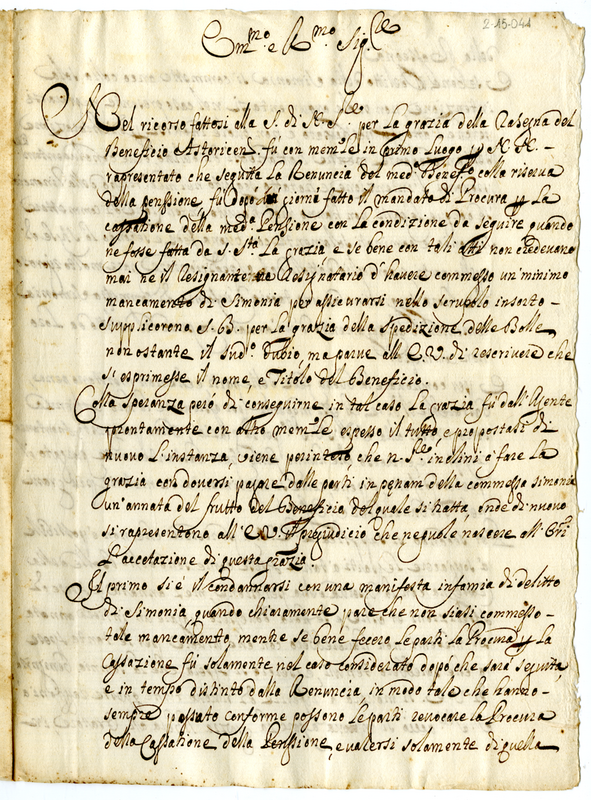 2-15-041
Em.mo e R.mo Sig.re
Nel ricorso fattosi alla S. di N. S.re per La grazia della Rasegna del
Beneficio Astoricen. fù con mem.le in primo Luogo
rapresentato che seguita La Renuncia del med.o Benefo colla riserva
della penssione fù dopò giorni fatto il mandato di Procura La
cassatione della med.a Pensione con La condizione da seguire quando
ne fosse fatta da S. S.tà La grazia e se bene con tali atti non credevano
mai ne il Resignante ne Resignatario d'havere commesso un minimo
mancamento di Simonia per assicurarsi nello scrupolo insorto -
supplicorono S. B. per La grazia della spedizione delle Bolle
non ostante il sud.o dubio, ma parve all E. V. di rescrivere che
si esprimesse il nome, e Titolo del Beneficio.
Colla Speranza però di conseguirne in tal caso La grazia fù dall'Agente
prontamente con altro mem.le espesso il tutto, e propostasi di
nuovo L'instanza, viene perinteso che N. S.re inclini à fare La
grazia con doversi pagare dalle parti in pęnam della commessa simonia
un'annata del frutto del Beneficio del quale si tratta, onde di nuovo
si rapresentono all'E. V. pregiudicio che ne puole nascere alli
L'accetazione di questa grazia.
Il primo si è il condannarsi con una manifesta infamia di delitto
di Simonia, quando chiaramente pare che non siasi commesso -
tale mancamento, mentre se bene fecero Le parti La Procura La
Cassazione fù solamente nel caso considerato dopo che sarà seguita
e in tempo distinto dalla Renuncia, in modo tale che hanno -
sempre possuto conforme possono Le parti revocare la Procura
della Cassatione della Penssione, e valersi solamente di quella